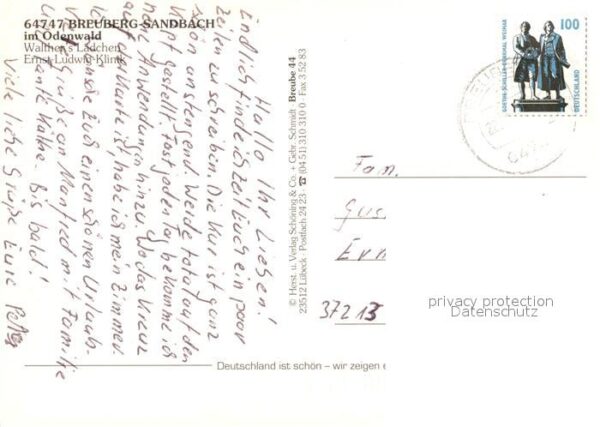 64747 BREUBERG-SANDBACH
im Odenwald
Walther's Lädchen
Ernst-Ludwig-Klinik
Hallo Ihr Lieben!
Endlich finde ich Zeit Euch ein paar
Zeilen zu schreiben. Die Kur ist ganz
schön anstengend. Werde total auf den
Kopf gestellt. Fast jeden Tag bekomme ich
neue Anwendungen hinzu. Wo das Kreuz
auf Karte ist, habe ich mein Zimmer.
Euch zus. einen schönen Urlaub.
Grüße an Manfred mit Familie
Tante Käthe. Bis bald!
Viele liebe Grüße Eure
© Herst. u. Verlag Schöning & Co. + Gebr. Schmidt · Breube 44
23512 Lübeck · Postfach 24 23 ☎ (04 51) 310 310 0 · Fax 3 52 83
GOETHE-SCHILLER-DENKMAL WEIMAR
100
DEUTSCHLAND
Fam.
Gus
37213
privacy protection
Datenschutz
Deutschland ist schön – wir zeigen e